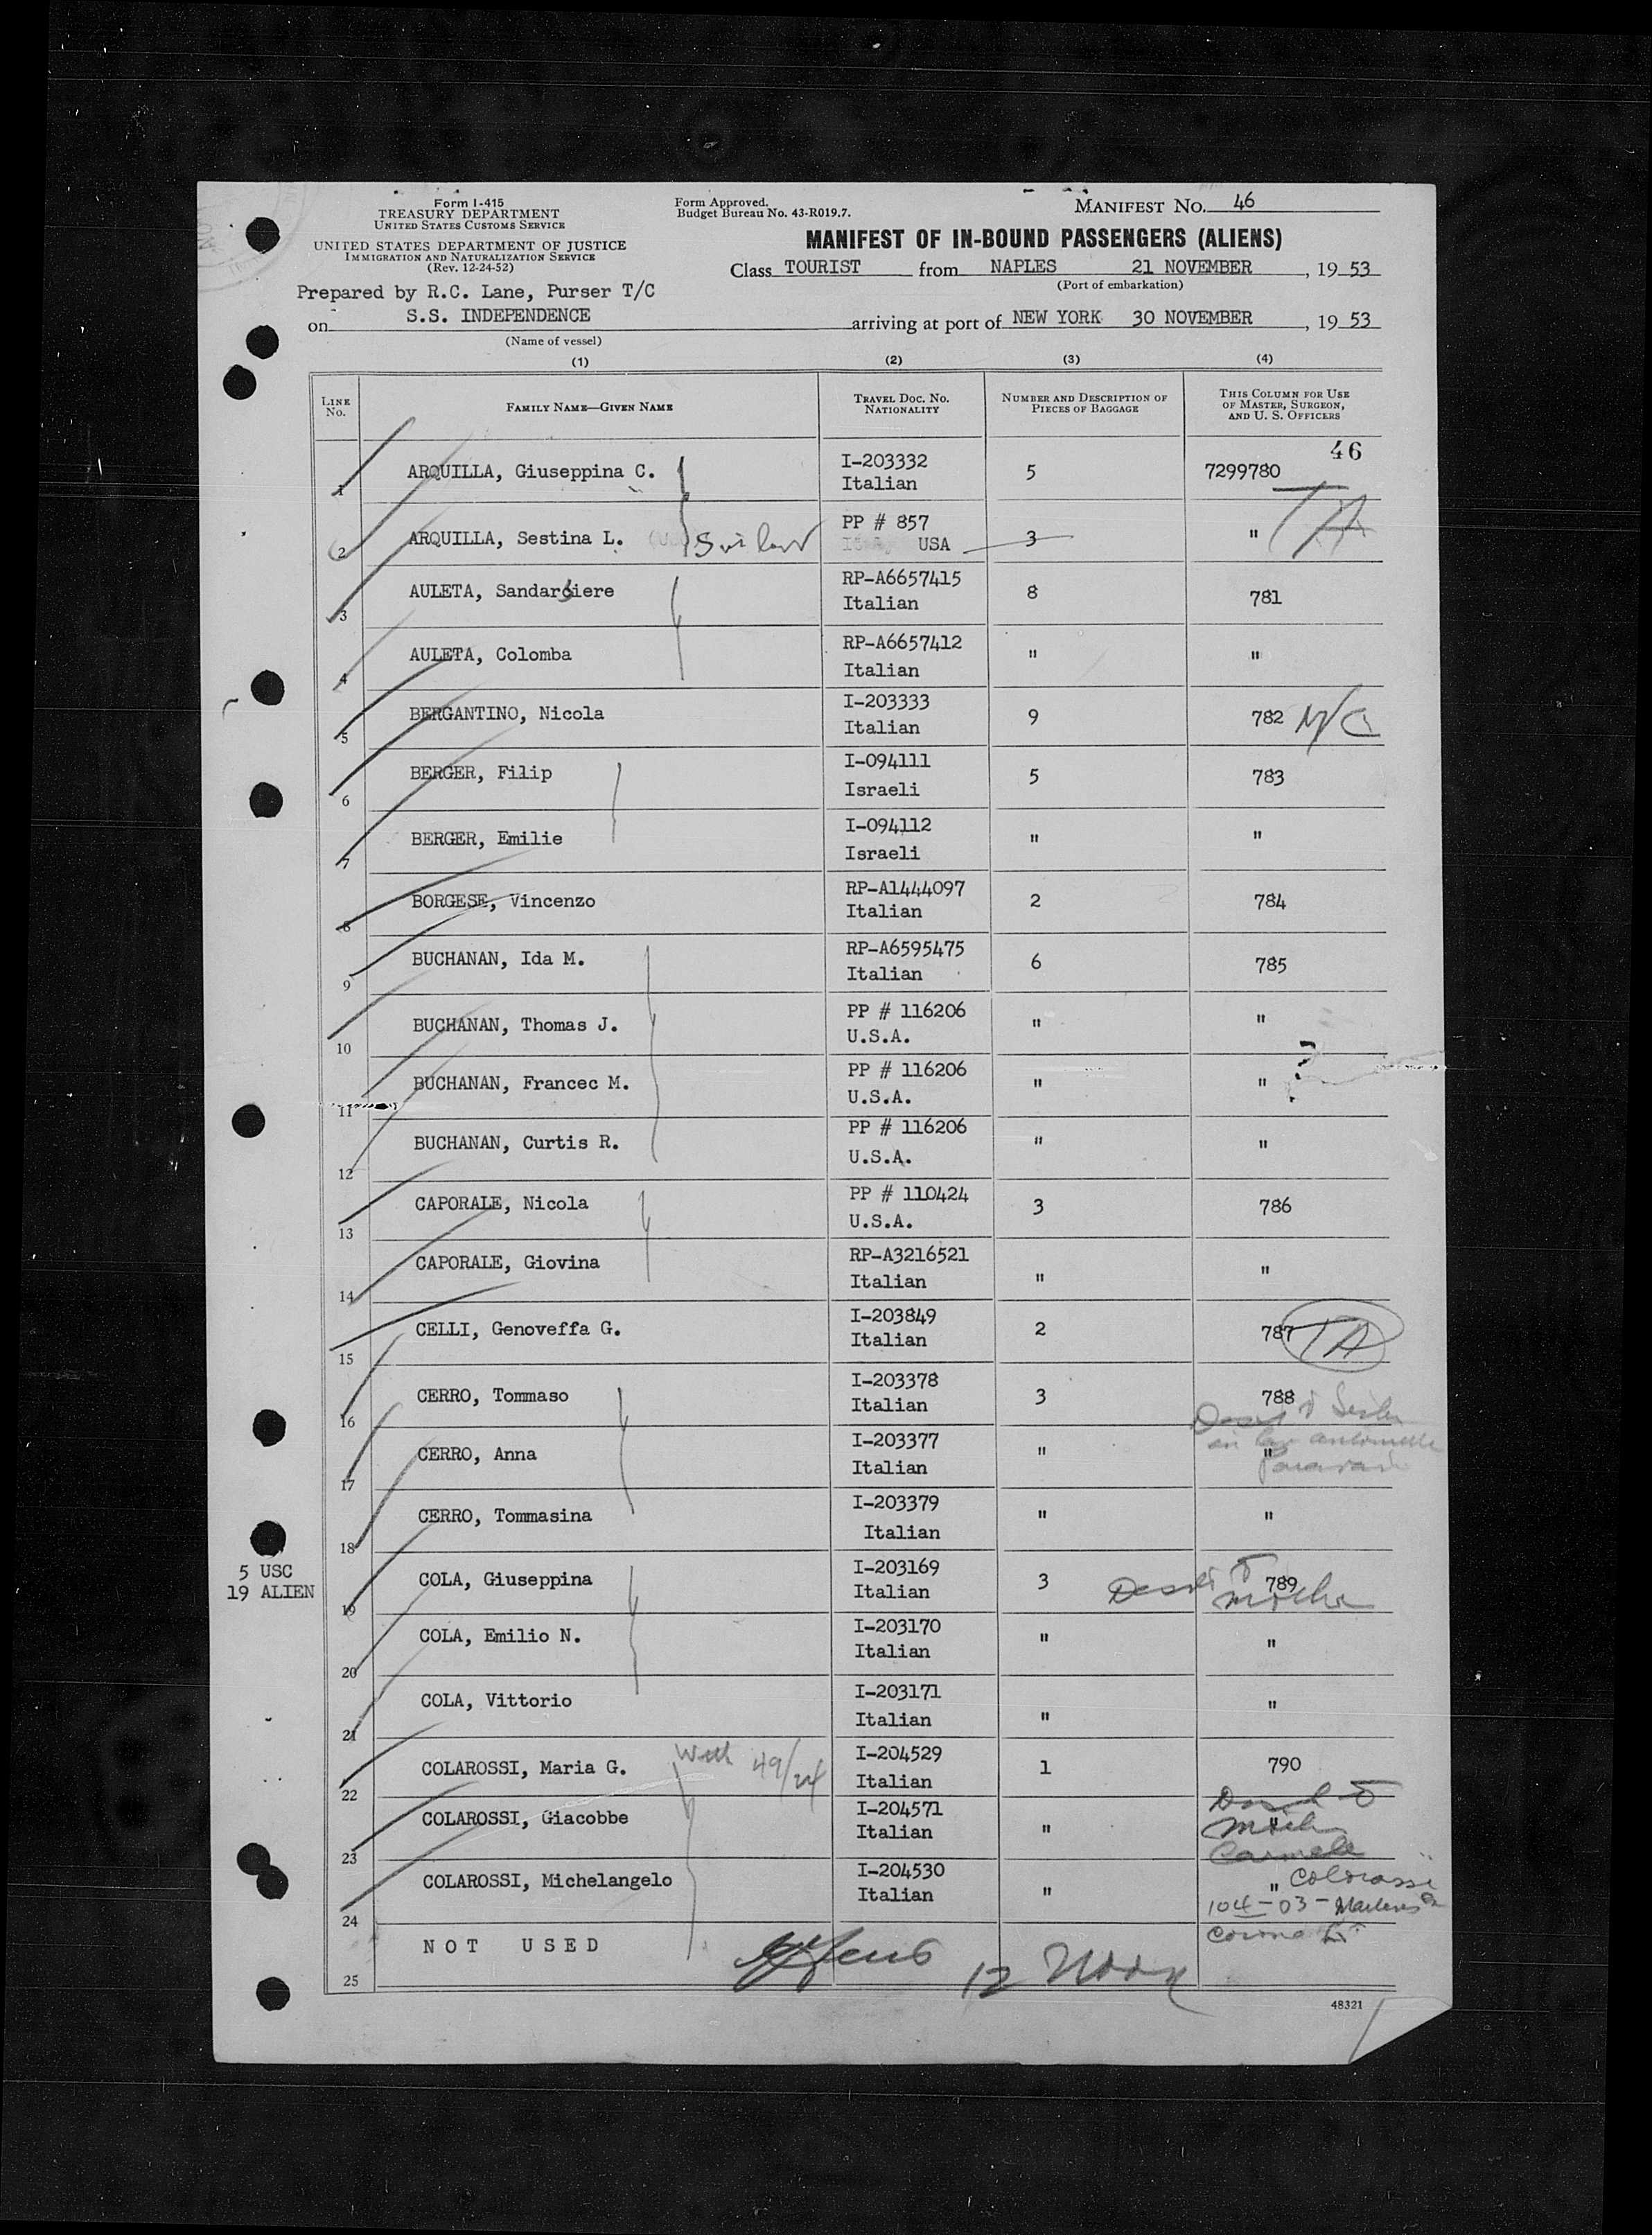 Form I-415
TREASURY DEPARTMENT
UNITED STATES CUSTOMS SERVICE
UNITED STATES DEPARTMENT OF JUSTICE
IMMIGRATION AND NATURALIZATION SERVICE
(Rev. 12-24-52)
Form Approved.
Budget Bureau No. 43-R019.7.
MANIFEST NO. 46
MANIFEST OF IN-BOUND PASSENGERS (ALIENS)
Class TOURIST from NAPLES 21 NOVEMBER, 19 53
(Port of embarkation)
Prepared by R.C. Lane, Purser T/C
on S.S. INDEPENDENCE arriving at port of NEW YORK 30 NOVEMBER, 19 53
(Name of vessel)
(1) (2) (3) (4)
LINE NO. FAMILY NAME—GIVEN NAME TRAVEL DOC. NO. NATIONALITY NUMBER AND DESCRIPTION OF PIECES OF BAGGAGE THIS COLUMN FOR USE OF MASTER, SURGEON, AND U. S. OFFICERS
46
1 ARQUILLA, Giuseppina C. I-203332 Italian 5 7299780
2 ARQUILLA, Sestina L. PP # 857 USA 3 " TA
3 AULETA, Sandarciere RP-A6657415 Italian 8 781
4 AULETA, Colomba RP-A6657412 Italian " "
5 BERGANTINO, Nicola I-203333 Italian 9 782 N/C
6 BERGER, Filip I-094111 Israeli 5 783
7 BERGER, Emilie I-094112 Israeli " "
8 BORGESE, Vincenzo RP-A1444097 Italian 2 784
9 BUCHANAN, Ida M. RP-A6595475 Italian 6 785
10 BUCHANAN, Thomas J. PP # 116206 U.S.A. " "
11 BUCHANAN, Francec M. PP # 116206 U.S.A. " " ?
12 BUCHANAN, Curtis R. PP # 116206 U.S.A. " "
13 CAPORALE, Nicola PP # 110424 U.S.A. 3 786
14 CAPORALE, Giovina RP-A3216521 Italian " "
15 CELLI, Genoveffa G. I-203849 Italian 2 787 TA
16 CERRO, Tommaso I-203378 Italian 3 788
17 CERRO, Anna I-203377 Italian " "
18 CERRO, Tommasina I-203379 Italian " "
5 USC
19 ALIEN
19 COLA, Giuseppina I-203169 Italian 3 789
20 COLA, Emilio N. I-203170 Italian " "
21 COLA, Vittorio I-203171 Italian " "
22 COLAROSSI, Maria G. With 49/24 I-204529 Italian 1 790
23 COLAROSSI, Giacobbe I-204571 Italian " "
24 COLAROSSI, Michelangelo I-204530 Italian " "
Colorassi
104-03-
Corona L.I.
25 NOT USED
12 Noon
48321